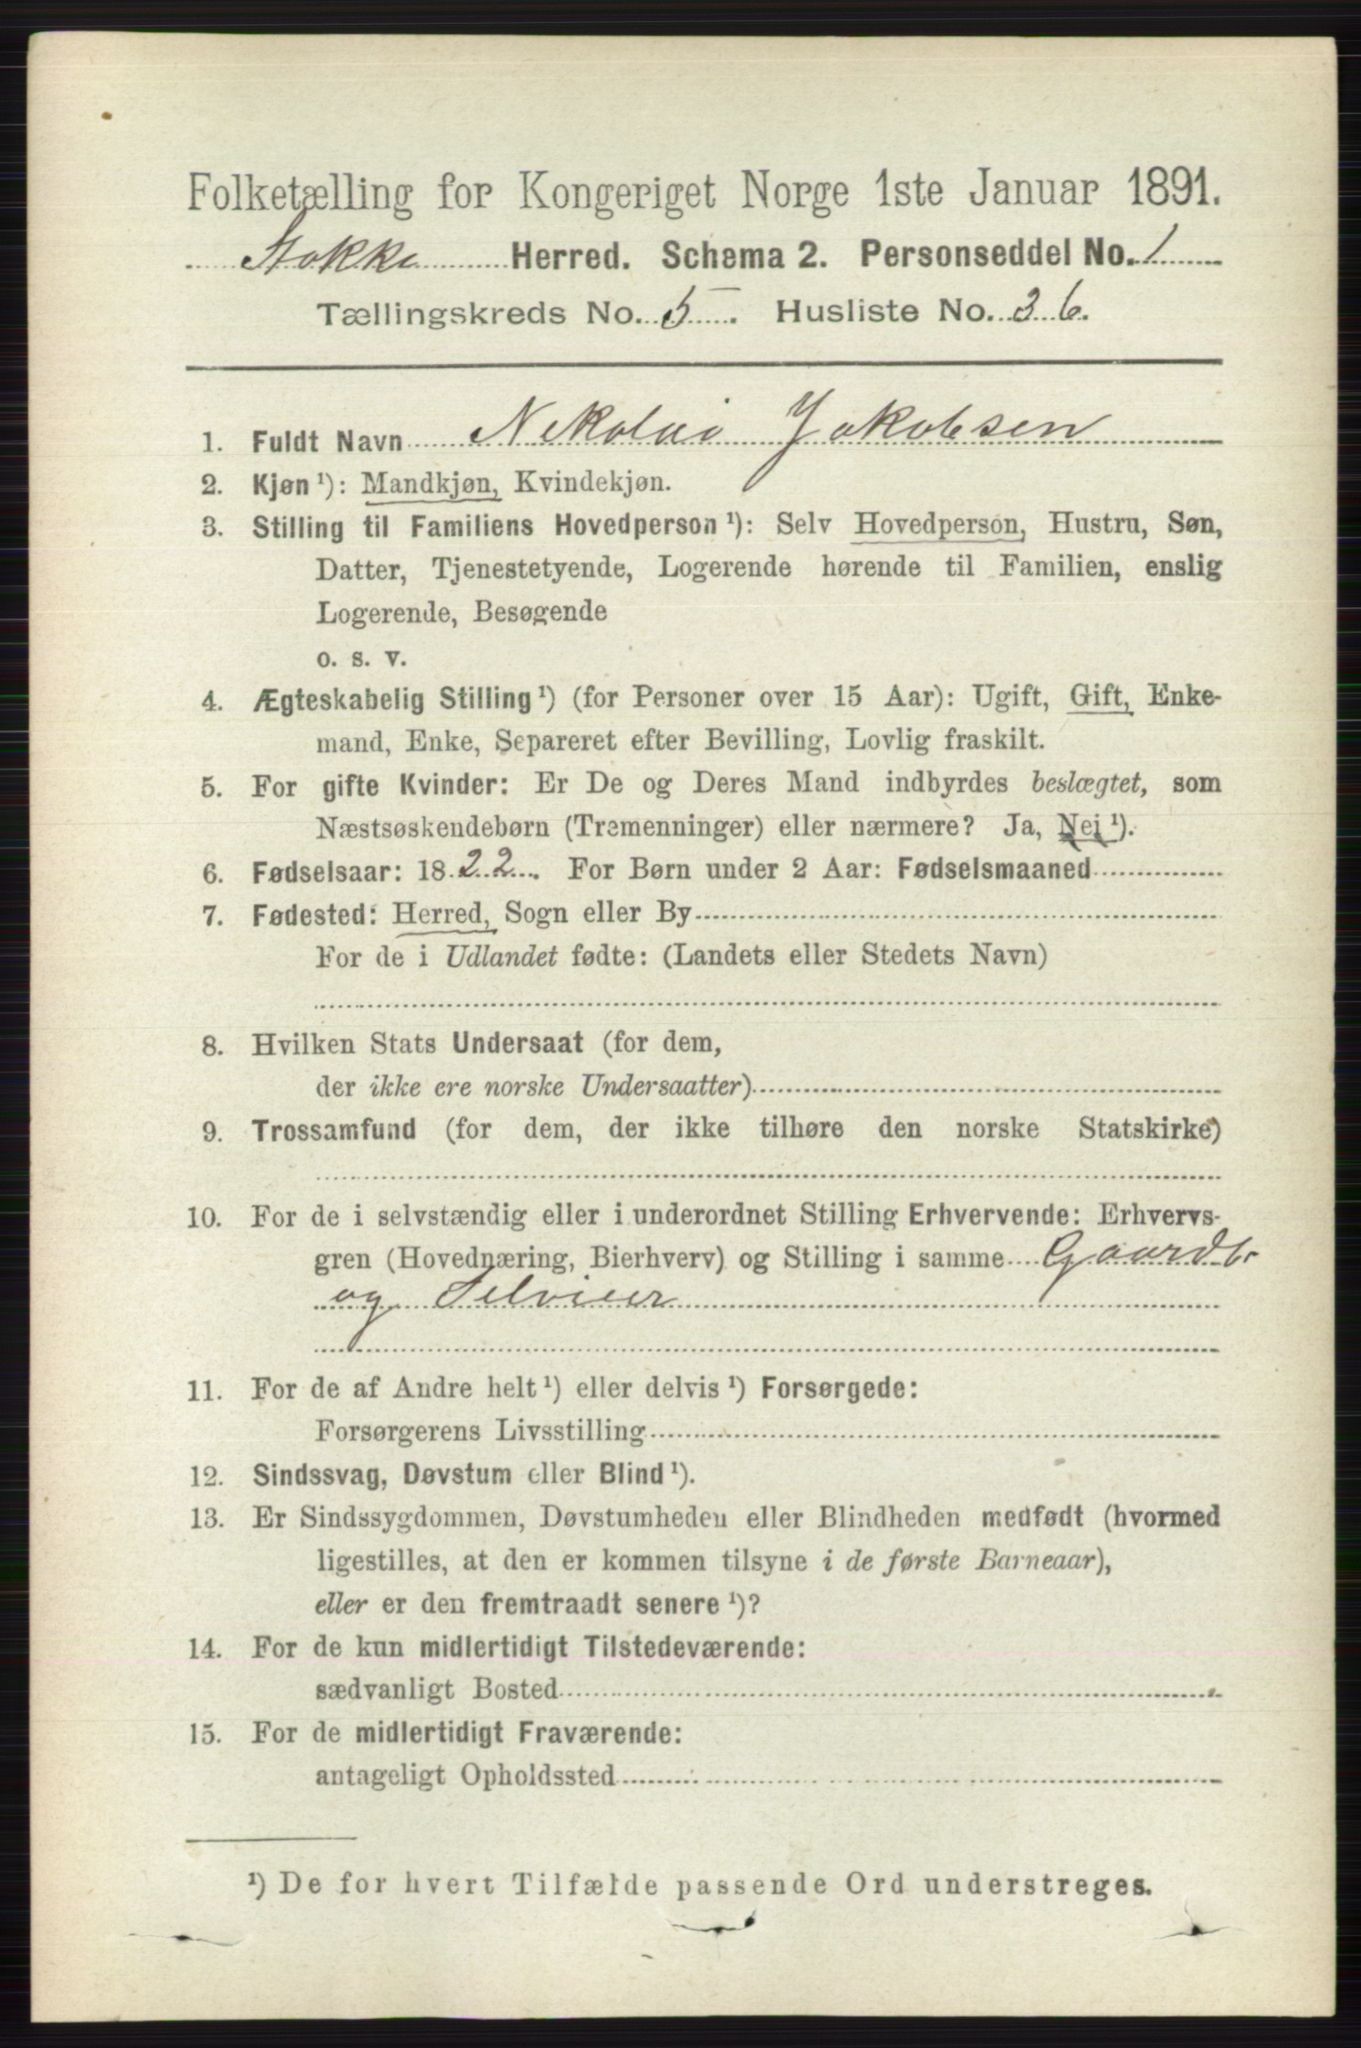 Folketælling for Kongeriget Norge 1ste Januar 1891.
Stokke Herred. Schema 2. Personseddel No. 1
Tællingskreds No. 5. Husliste No. 36.
1. Fuldt Navn Nikolai Jakobsen
2. Kjøn ¹): Mandkjøn, Kvindekjøn.
3. Stilling til Familiens Hovedperson ¹): Selv Hovedperson, Hustru, Søn,
Datter, Tjenestetyende, Logerende hørende til Familien, enslig
Logerende, Besøgende
o. s. v.
4. Ægteskabelig Stilling ¹) (for Personer over 15 Aar): Ugift, Gift, Enke-
mand, Enke, Separeret efter Bevilling, Lovlig fraskilt.
5. For gifte Kvinder: Er De og Deres Mand indbyrdes beslægtet, som
Næstsøskendebørn (Tremenninger) eller nærmere? Ja, Nei ¹).
6. Fødselsaar: 1822. For Børn under 2 Aar: Fødselsmaaned
7. Fødested: Herred, Sogn eller By
For de i Udlandet fødte: (Landets eller Stedets Navn)
8. Hvilken Stats Undersaat (for dem,
der ikke ere norske Undersaatter)
9. Trossamfund (for dem, der ikke tilhøre den norske Statskirke)
10. For de i selvstændig eller i underordnet Stilling Erhvervende: Erhvervs-
gren (Hovednæring, Bierhverv) og Stilling i samme Gaardbr
og Selveier
11. For de af Andre helt ¹) eller delvis ¹) Forsørgede:
Forsørgerens Livsstilling
12. Sindssvag, Døvstum eller Blind ¹).
13. Er Sindssygdommen, Døvstumheden eller Blindheden medfødt (hvormed
ligestilles, at den er kommen tilsyne i de første Barneaar),
eller er den fremtraadt senere ¹)?
14. For de kun midlertidigt Tilstedeværende:
sædvanligt Bosted
15. For de midlertidigt Fraværende:
antageligt Opholdssted
¹) De for hvert Tilfælde passende Ord understreges.